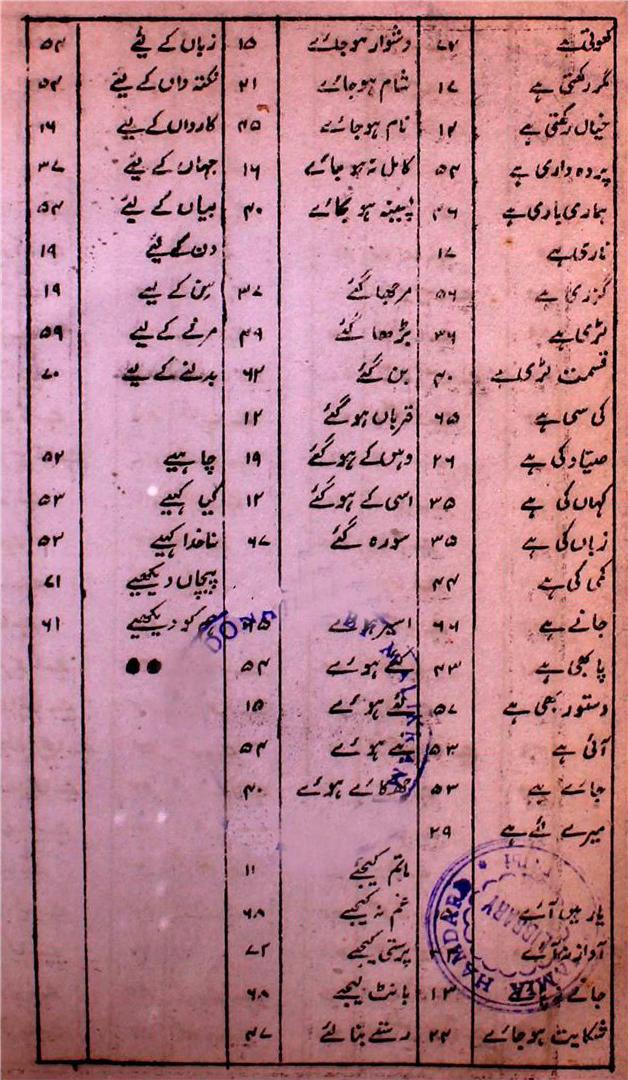 کھوتی ہے ۲۷
گر رکھتی ہے ۱۷
خیال رکھتی ہے ۱۲
پردہ داری ہے ۵۴
ہماری باری ہے ۴۶
ناری ہے ۱۷
گزری ہے ۵۶
لڑی ہے ۳۶
قسمت لڑی ہے ۴۰
کی سی ہے ۶۵
صیّاد کی ہے ۲۶
کہاں کی ہے ۳۵
زباں کی ہے ۳۵
کمی کی ہے ۴۴
جانے ہے ۶۶
پا بھی ہے ۴۳
دستور بھی ہے ۵۷
آئی ہے ۵۳
جائے ہے ۵۳
میرے لئے ہے ۲۹
یار میں آئے
آواز نہ آئے
جانے ۱۳
شکایت ہو جائے ۲۲
دشوار ہو جائے ۱۵
شام ہو جائے ۲۱
نام ہو جائے ۴۵
کامل نہ ہو جائے ۱۶
پسینہ ہو جائے ۴۰
مرجھا گئے ۳۷
بڑھا گئے ۴۹
بن گئے ۶۲
قرباں ہو گئے ۱۲
وہیں کے ہو گئے ۱۹
اسی کے ہو گئے ۱۲
سو رہ گئے ۶۷
ہوئے
ہوئے ۵۴
ہوئے ۱۵
ہوئے ۵۴
ہوئے ۴۰
ماتم کیجئے ۱۱
غم نہ کیجئے ۶۸
پرستی کیجئے ۷۲
بانٹ لیجئے ۶۸
رستے بنائے ۴۷
زباں کے لئے ۵۴
نکتہ داں کے لیئے ۵۴
کارواں کے لیے ۱۶
جہاں کے لیئے ۳۷
بیاں کے لیئے ۵۴
دن کے لیئے ۱۹
سِن کے لیے ۱۹
مرنے کے لیے ۵۹
بدلنے کے لیے ۷۰
چاہیے ۵۲
کیا کہیے ۵۳
ناخدا کہیے ۵۲
پہچاں دیکھیے ۷۱
کو دیکھیے ۶۱
HAMDARD
LIBRARY